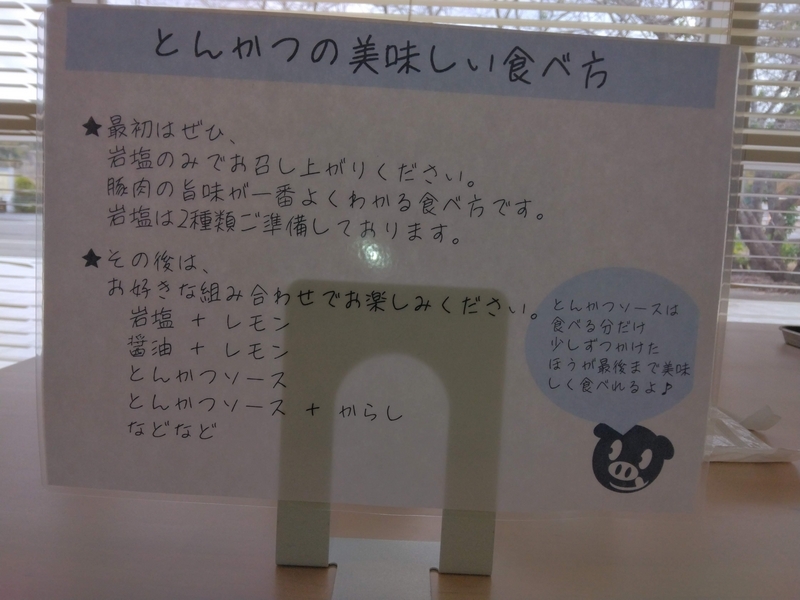 とんかつの美味しい食べ方
★最初はぜひ、
岩塩のみでお召し上がりください。
豚肉の旨味が一番よくわかる食べ方です。
岩塩は2種類ご準備しております。
★その後は、
お好きな組み合わせでお楽しみください。
岩塩 + レモン
醤油 + レモン
とんかつソース
とんかつソース + からし
などなど
とんかつソースは
食べる分だけ
少しずつかけた
ほうが最後まで美味
しく食べれるよ♪